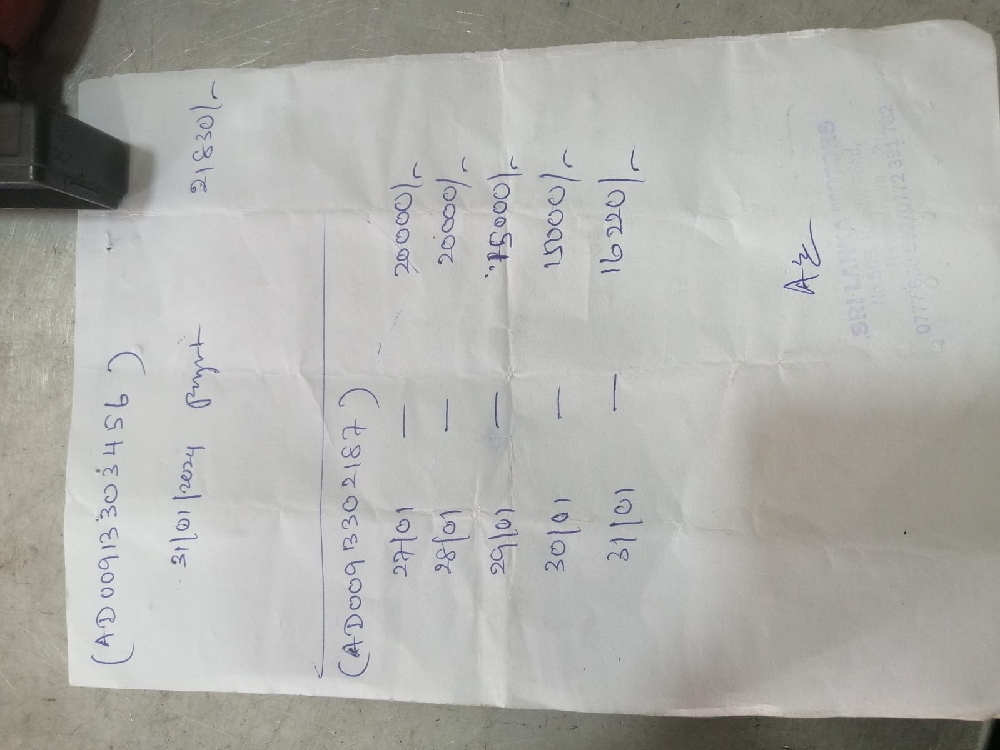 (AD00913303456)
31/01/2024 Paymt 21830/-
(AD00913302187)
27/01 — 20000/-
28/01 — 20000/-
29/01 — 15000/-
30/01 — 15000/-
31/01 — 16220/-
SRI LANKA MOTORS